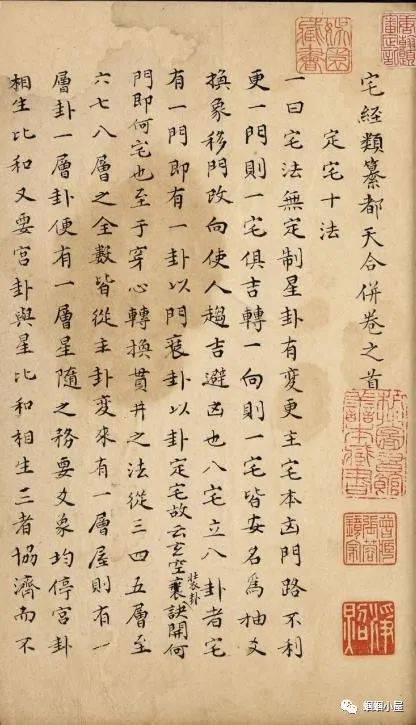 宅經類纂都天合併卷之首
定宅十法
一曰宅法無定制星卦有變更主宅本凶門路不利
更一門則一宅俱吉轉一向則一宅皆安名爲抽爻
換象移門改向使人趨吉避凶也八宅立八卦者宅
有一門即有一卦以門裝卦以卦定宅故云玄空裝卦訣開何
門即何宅也至于穿心轉換貫井之法從三四五層至
六七八層之全數皆從主卦變來有一層屋則有一
層卦一層卦便有一層星隨之務要爻象均停宮卦
相生比和又要宮卦與星比和相生三者協濟而不
蝈蝈小屋